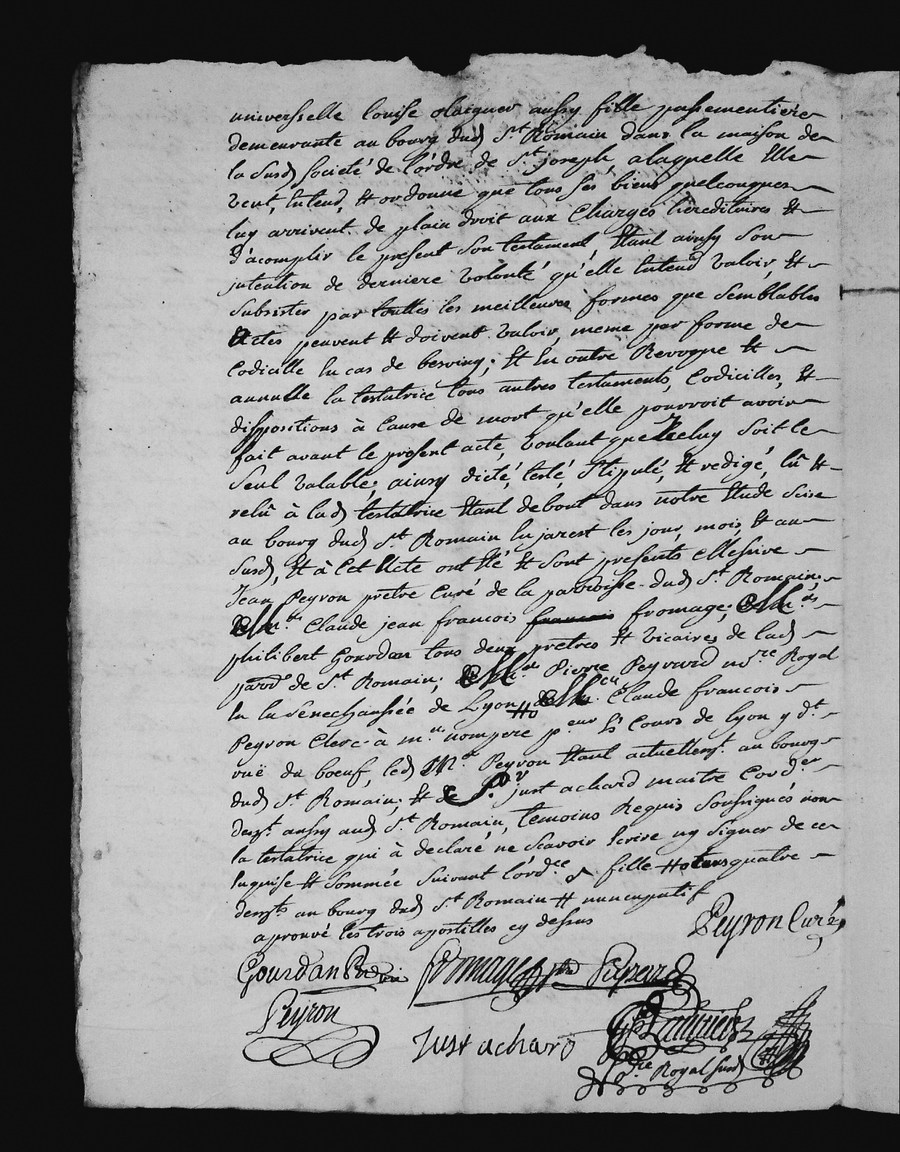 universelle louise aussy fille passementiere
demeurante au bourg dud St Romain dans la maison de
la susd société de l'ordre de St joseph, a laquelle Elle
veut, Entend, & ordonne que tous ses biens quelconques
luy arrivent de plain droit aux Charges héréditaires &
d'acomplir le present son testament, Etant ainsy son
intention de derniere volonté qu'elle Entend valoir, &
subsister par touttes les meilleures formes que semblables
Actes peuvent & doivent valoir, meme par forme de
Codicille En cas de besoing; & En outre Revoque &
annulle la testatrice tous autres testaments, Codicilles, &
dispositions à Cause de mort qu'elle pourroit avoir
fait avant le present acte, voulant que Iceluy soit le
seul valable; ainsy dicté, testé, stipulé, & redigé, lû &
relû à lad testatrice Etant debout dans notre Etude sise
au bourg dud St Romain En jarest les jour, mois, & an
susd, & à Cet Acte ont Eté & sont presents Messire
Jean Peyron pretre Curé de la parroisse dud St Romain;
Mre Claude jean francois fromage; Mre
philibert Gourdan tous deux prêtres & vicaires de lad
parrse de St Romain; Me Pierre Peyrard nore Royal
En la senechaussée de Lyon, Claude francois
Peyron Clerc à me nompere peur Es Cours de Lyon y dt
ruë du boeuf, led Mr Peyron Etant actuellemt au bourg
dud St Romain; & de Sr just achard maitre Cordier
demt aussy aud St Romain, temoins Requis soussignés non
la testatrice qui à declaré ne scavoir Ecrire ny signer de ce
Enquise & sommée suivant l'ordce fille quatre
demts au bourg dud St Romain & nuncupatif
aprouvé les trois apostilles cy dessus
Peyron Curé
Gourdan fromage Peyrard
Peyron
Just achard
Nore Royal susd